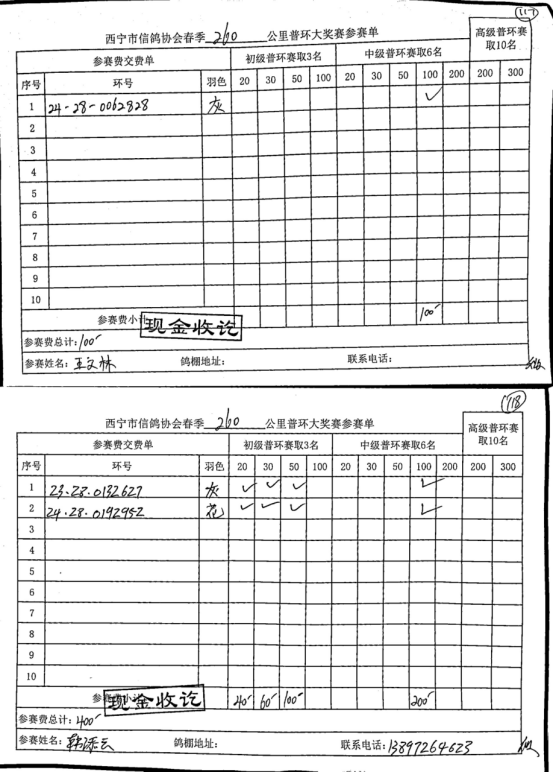 117
西宁市信鸽协会春季 260 公里普环大奖赛参赛单
参赛费交费单 初级普环赛取3名 中级普环赛取6名 高级普环赛取10名
序号 环号 羽色 20 30 50 100 20 30 50 100 200 200 300
1 24-28-0062828 灰 ✓
2
3
4
5
6
7
8
9
10
参赛费小计 现金收讫 100
参赛费总计:100
参赛姓名:王文林 鸽棚地址: 联系电话:
118
西宁市信鸽协会春季 260 公里普环大奖赛参赛单
参赛费交费单 初级普环赛取3名 中级普环赛取6名 高级普环赛取10名
序号 环号 羽色 20 30 50 100 20 30 50 100 200 200 300
1 23.28.0132627 灰 ✓ ✓ ✓ ✓
2 24.28.0192952 花 ✓ ✓ ✓ ✓
3
4
5
6
7
8
9
10
参赛费小计 现金收讫 40 60 100 200
参赛费总计:400
参赛姓名:韩 鸽棚地址: 联系电话:13897264623